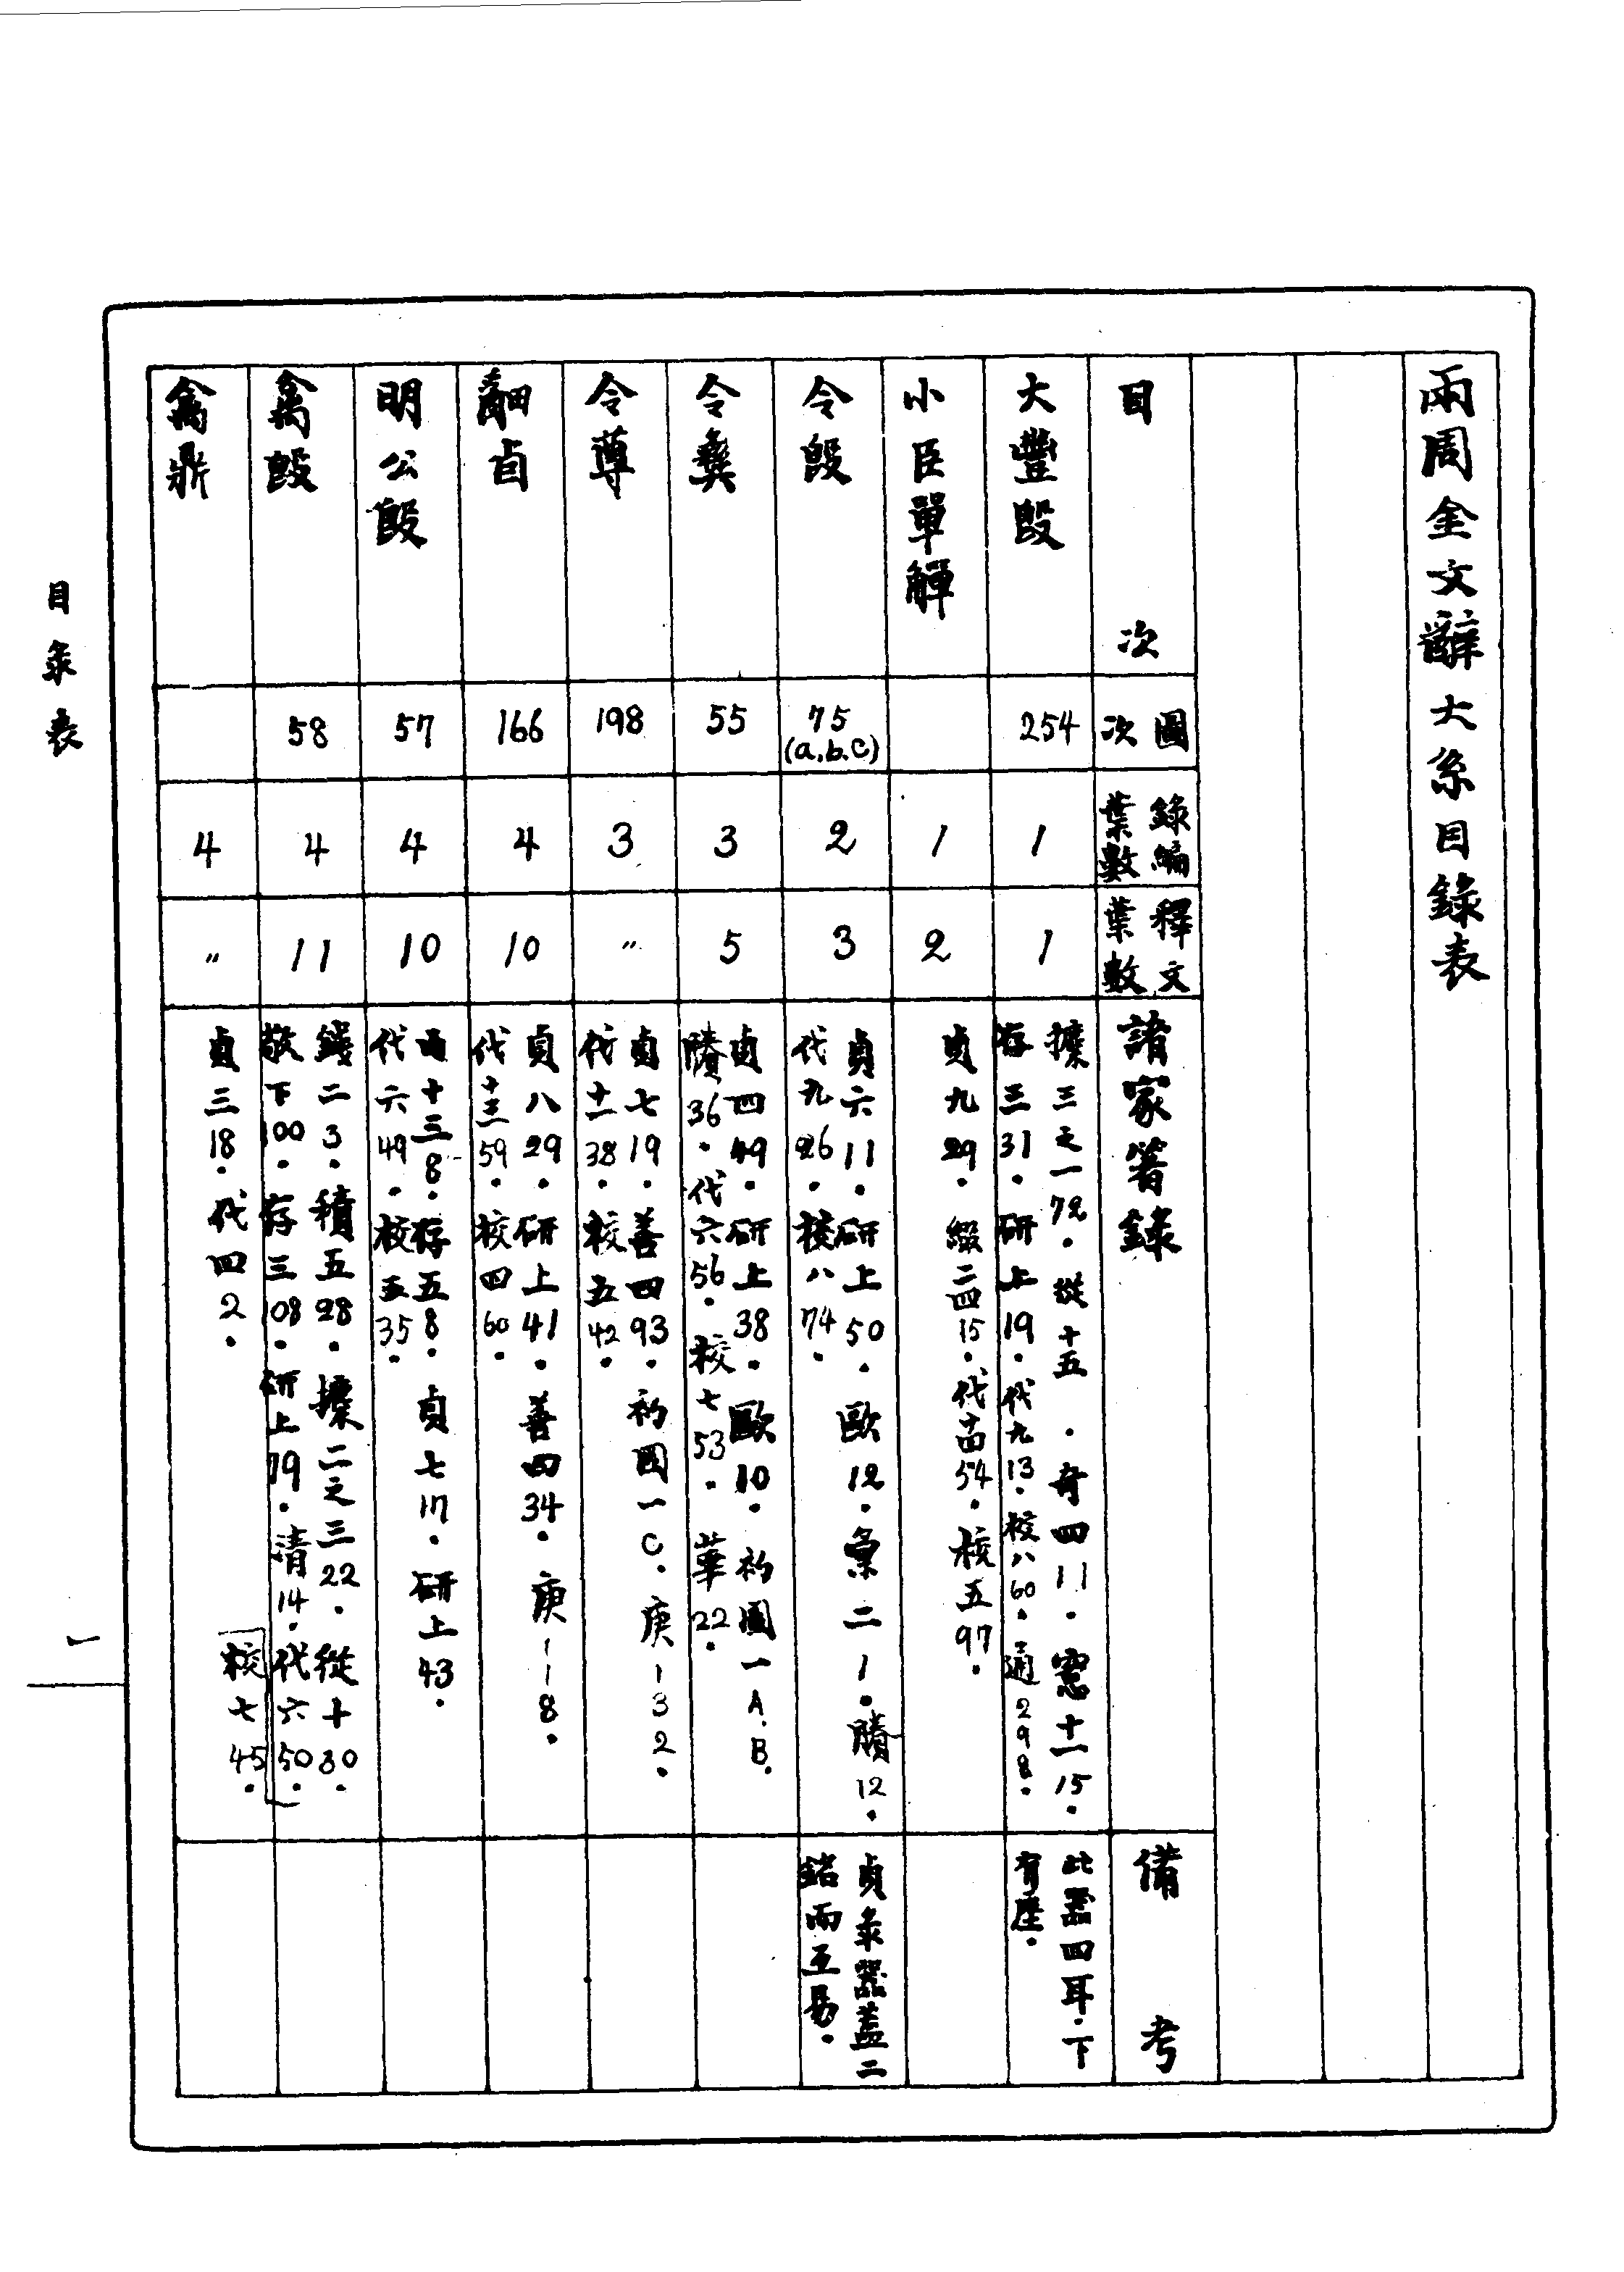 兩周金文辭大系目錄表
目次
圖次
錄編葉數
釋文葉數
諸家箸錄
備考
大豐𣪘
254
1
1
攈三之一72．從十五．奇四11．窓十一15．
存三31．研上19．代九13．校八60．通298．
此器四耳．下
有座．
小臣單觶
1
2
貞九29．綴二四15．代十四54．校五97．
令𣪘
75
(a.b.c)
2
3
貞六11．研上50．歐12．彙二1．賸12．
代九26．校八74．
貞彔器蓋二
銘而互易．
令彝
55
3
5
貞四49．研上38．歐10．初圖一A.B.
賸36．代六56．校七53．華22．
令尊
198
3
〃
貞七19．善四93．初圖一C．庚一32．
代十一38．校五42．
卣
166
4
10
貞八29．研上41．善四34．庚一18．
代十三59．校四60．
明公𣪘
57
4
10
兩十三8．存五8．貞七17．研上43．
代六49．校五35．
禽𣪘
58
4
11
錢二3．積五28．攈二之三22．從十30．
敬下100．存三108．研上79．清14．代六50．
校七45．
禽鼎
4
〃
貞三18．代四2．
目彔表
一